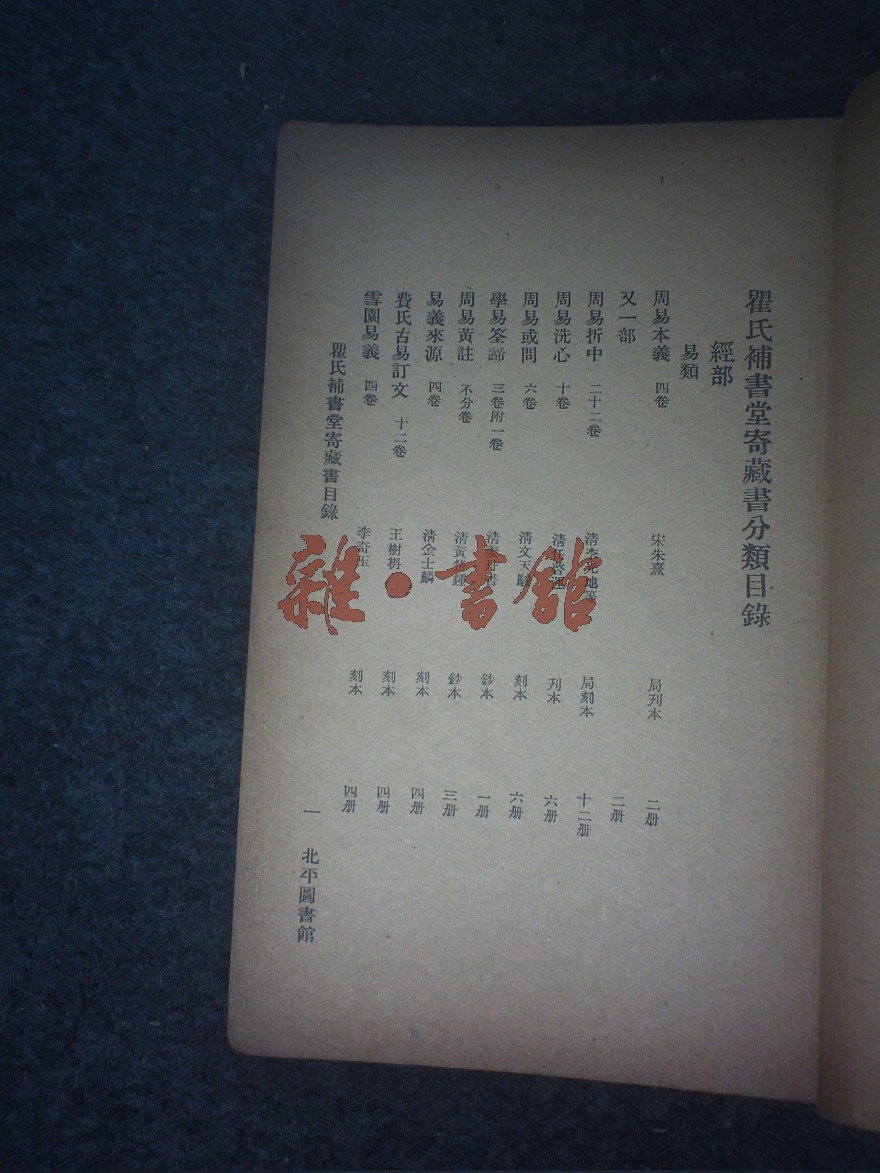 瞿氏補書堂寄藏書分類目錄
經部
易類
周易本義 四卷 宋朱熹 局刊本 二册
又一部 二册
周易折中 二十二卷 清李光地等 局刻本 十二册
周易洗心 十卷 清任啓運 刊本 六册
周易或問 六卷 清文天駿 刻本 六册
學易筌蹄 三卷附一卷 清 鈔本 一册
周易黃註 不分卷 清黃 鈔本 三册
易義來源 四卷 清金士麟 刻本 四册
費氏古易訂文 十二卷 王樹枏 刻本 四册
雪園易義 四卷 李奇玉 刻本 四册
瞿氏補書堂寄藏書目錄 一 北平圖書館
雜·書館